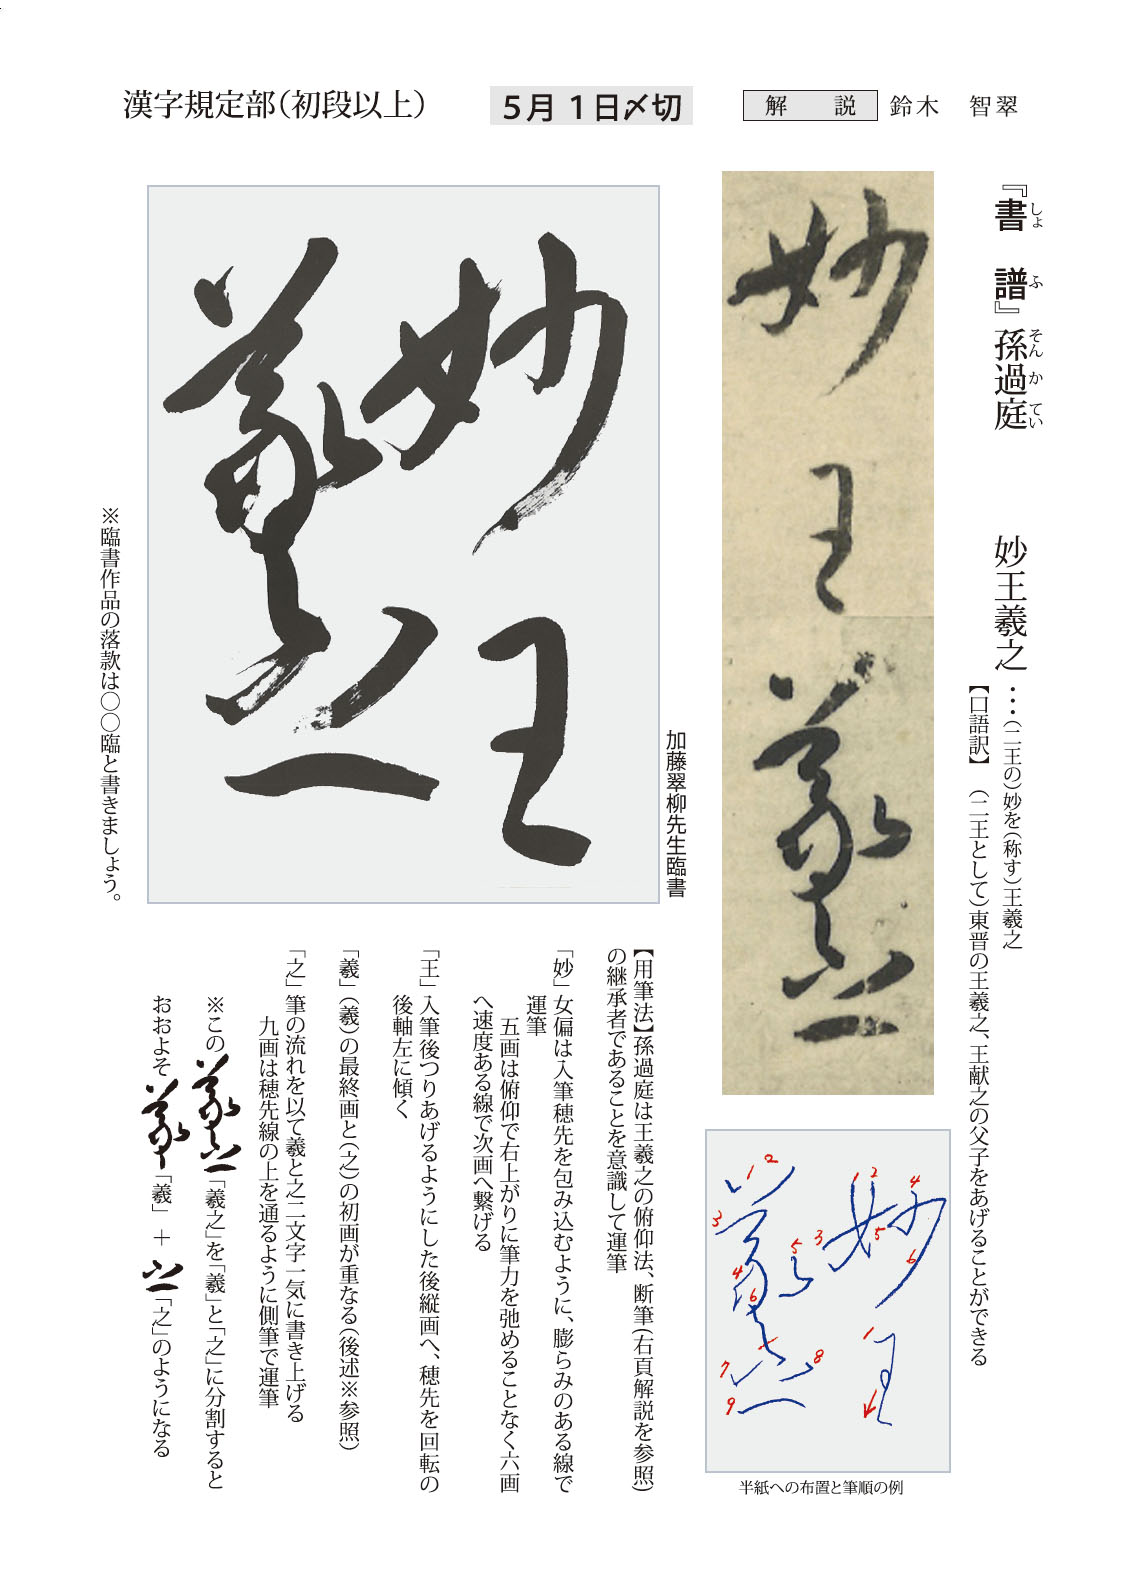 漢字規定部（初段以上）
５月１日〆切
解　説
鈴木　智翠
『書譜』孫過庭　妙王羲之
しょ　ふ　そん　か　てい
…（二王の）妙を（称す）王羲之
【口語訳】（二王として）東晋の王羲之、王献之の父子をあげることができる
妙王羲之
妙王
羲之
加藤翠柳先生臨書
※臨書作品の落款は〇〇臨と書きましょう。
妙王
羲之
1 2 3 4 5 6
1
1 2 3 4 5 6 7 8 9
半紙への布置と筆順の例
【用筆法】孫過庭は王羲之の俯仰法、断筆（右頁解説を参照）
の継承者であることを意識して運筆
「妙」女偏は入筆穂先を包み込むように、膨らみのある線で
運筆
五画は俯仰で右上がりに筆力を弛めることなく六画
へ速度ある線で次画へ繋げる
「王」入筆後つりあげるようにした後縦画へ、穂先を回転の
後軸左に傾く
「羲」（羲）の最終画と（之）の初画が重なる（後述※参照）
「之」筆の流れを以て羲と之二文字一気に書き上げる
九画は穂先線の上を通るように側筆で運筆
※この羲之「羲之」を「羲」と「之」に分割すると
おおよそ羲「羲」＋之「之」のようになる